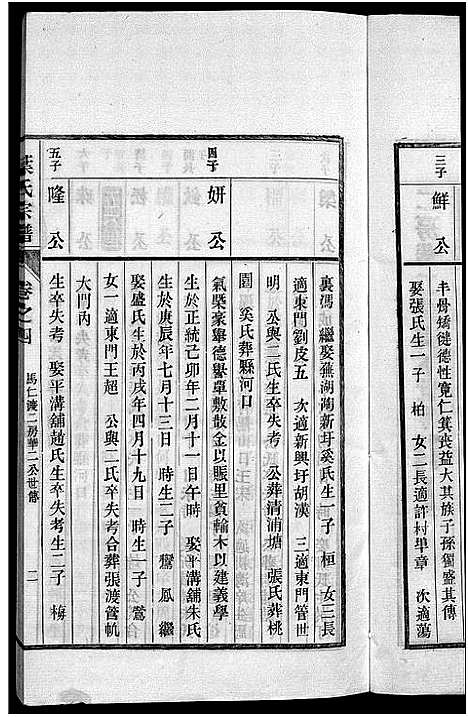 三子
鮮公
丰骨矯健德性寬仁箕裘益大其族子孫獨盛其傳
娶張氏生一子 柏 女二長適許村畢章 次適蕩
裏馮 繼娶蕪湖蕳新圩奚氏生一子 桓 女三長
適東門劉皮五 次適新興圩胡漢 三適東門管世
明 公與二氏生卒失考 公葬清浦塘 張氏葬桃
園 奚氏葬縣河口
四子
妍公
氣槩豪舉德譽單敷散金以賑里貧輸木以建義學
生於正統己卯年二月十一日午時 娶平溝舖朱氏
生於庚辰年七月十三日 時生二子 鸞 鳳 繼
娶盛氏生於丙戌年四月十九日 時生一子 鶯
女一適東門王超 公與二氏卒失考合葬張渡管軌
大門內
五子
隆公
生卒失考 娶平溝舖趙氏生卒失考生二子 梅
葉氏宗譜
卷之四
馬仁渡二房華二公世傳
二